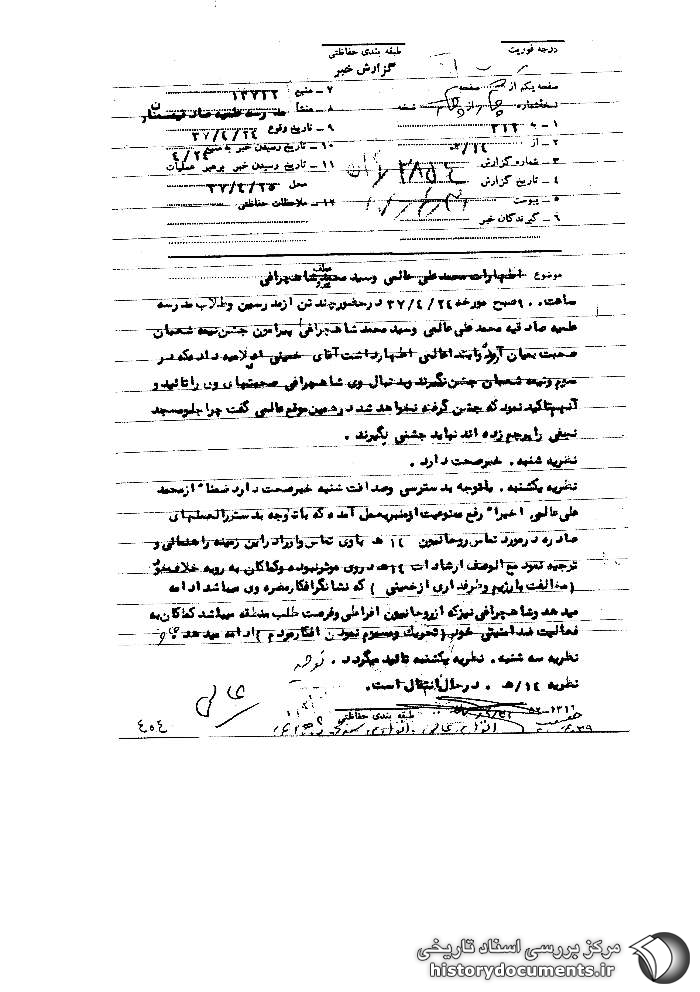 درجه فوریت
طبقه بندی حفاظتی
گزارش خبر
صفحه یکم از صفحه
نسخه شماره از نسخه
۱ ـ به ۳۱۲
۲ ـ از ۱۴/ه
۳ ـ شماره گزارش ۳۸۵۴
۴ ـ تاریخ گزارش
۵ ـ پیوست
۶ ـ گیرندگان خبر
۷ ـ منبع ۱۳۷۲۲
۸ ـ منشأ مدرسه علمیه صادقیه سمنان
۹ ـ تاریخ وقوع ۳۷/۴/۲۴
۱۰ ـ تاریخ رسیدن خبر به منبع ۴/۲۴
۱۱ ـ تاریخ رسیدن خبر برهبر عملیات
محل ۳۷/۴/۲۵
۱۲ ـ ملاحظات حفاظتی
موضوع اظهارات محمد علی عالمی وسید محمد شاهچراغی
ساعت ۹۰۰ صبح مورخه ۳۷/۴/۲۴ در حضور چند تن از مدرسین وطلاب مدرسه
علمیه صادقیه محمد علی عالمی وسید محمد شاهچراغی پیرامون جشن نیمه شعبان
صحبت بمیان آورده وابتدا عالمی اظهار داشت آقای خمینی اعلامیه داده که در
سوم ونیمه شعبان جشن نگیرند وبدنبال وی شاهچراغی صحبتهای وی را تائید و
تاکید نمود که جشن گرفته نخواهد شد در همین موقع عالمی گفت چرا جلو مسجد
نجفی را پرچم زده اند نباید جشنی بگیرند .
نظریه شنبه . خبر صحت دارد .
نظریه یکشنبه . باتوجه بدسترسی وصداقت شنبه خبر صحت دارد ضمنا" از محمد
علی عالمی اخیرا" رفع ممنوعیت از منبر بعمل آمده که باتوجه بدستورالعملهای
صادره در مورد تماس روحانیون ۱۴ هـ با وی تماس واورا در این زمینه راهنمائی و
توجیه نمود مع الوصف ارشادات ۱۴ هـ در وی موثر نبوده وکماکان به رویه خلاف خود
(مخالفت با رژیم وطرفداری از خمینی ) که نشانگر افکار مضره وی میباشد ادامه
میدهد وشاهچراغی نیز که از روحانیون افراطی وفرصت طلب منطقه میباشد کماکان به
فعالیت ضد امنیتی خود (تحریک ومسموم نمودن افکار مردم ) ادامه میدهد
نظریه سه شنبه . نظریه یکشنبه تائید میگردد .
نظریه ۱۴/هـ . در حال انتقال است .
طبقه بندی حفاظتی
۴۵۴
مرکز بررسی اسناد تاریخی
historydocuments.ir